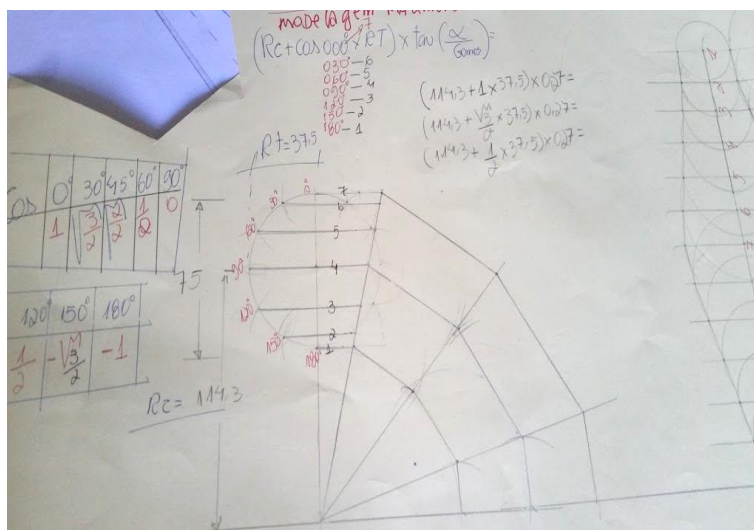 modelagem
(Rc+cos000°×RT)×tan(α/Gomos)=
030°-6
060°-5
090°-4
120°-3
150°-2
180°-1
(114,3+1×37,5)×0,27=
(114,3+√3/2×37,5)×0,27=
(114,3+1/2×37,5)×0,27=
Rt=37,5
Cos 0° 30° 45° 60° 90°
1 √3/2 √2/2 1/2 0
75
120° 150° 180°
1/2 -√3/2 -1
Rc=114,3
0° 7
30° 6
60° 5
90° 4
120° 3
150° 2
180° 1